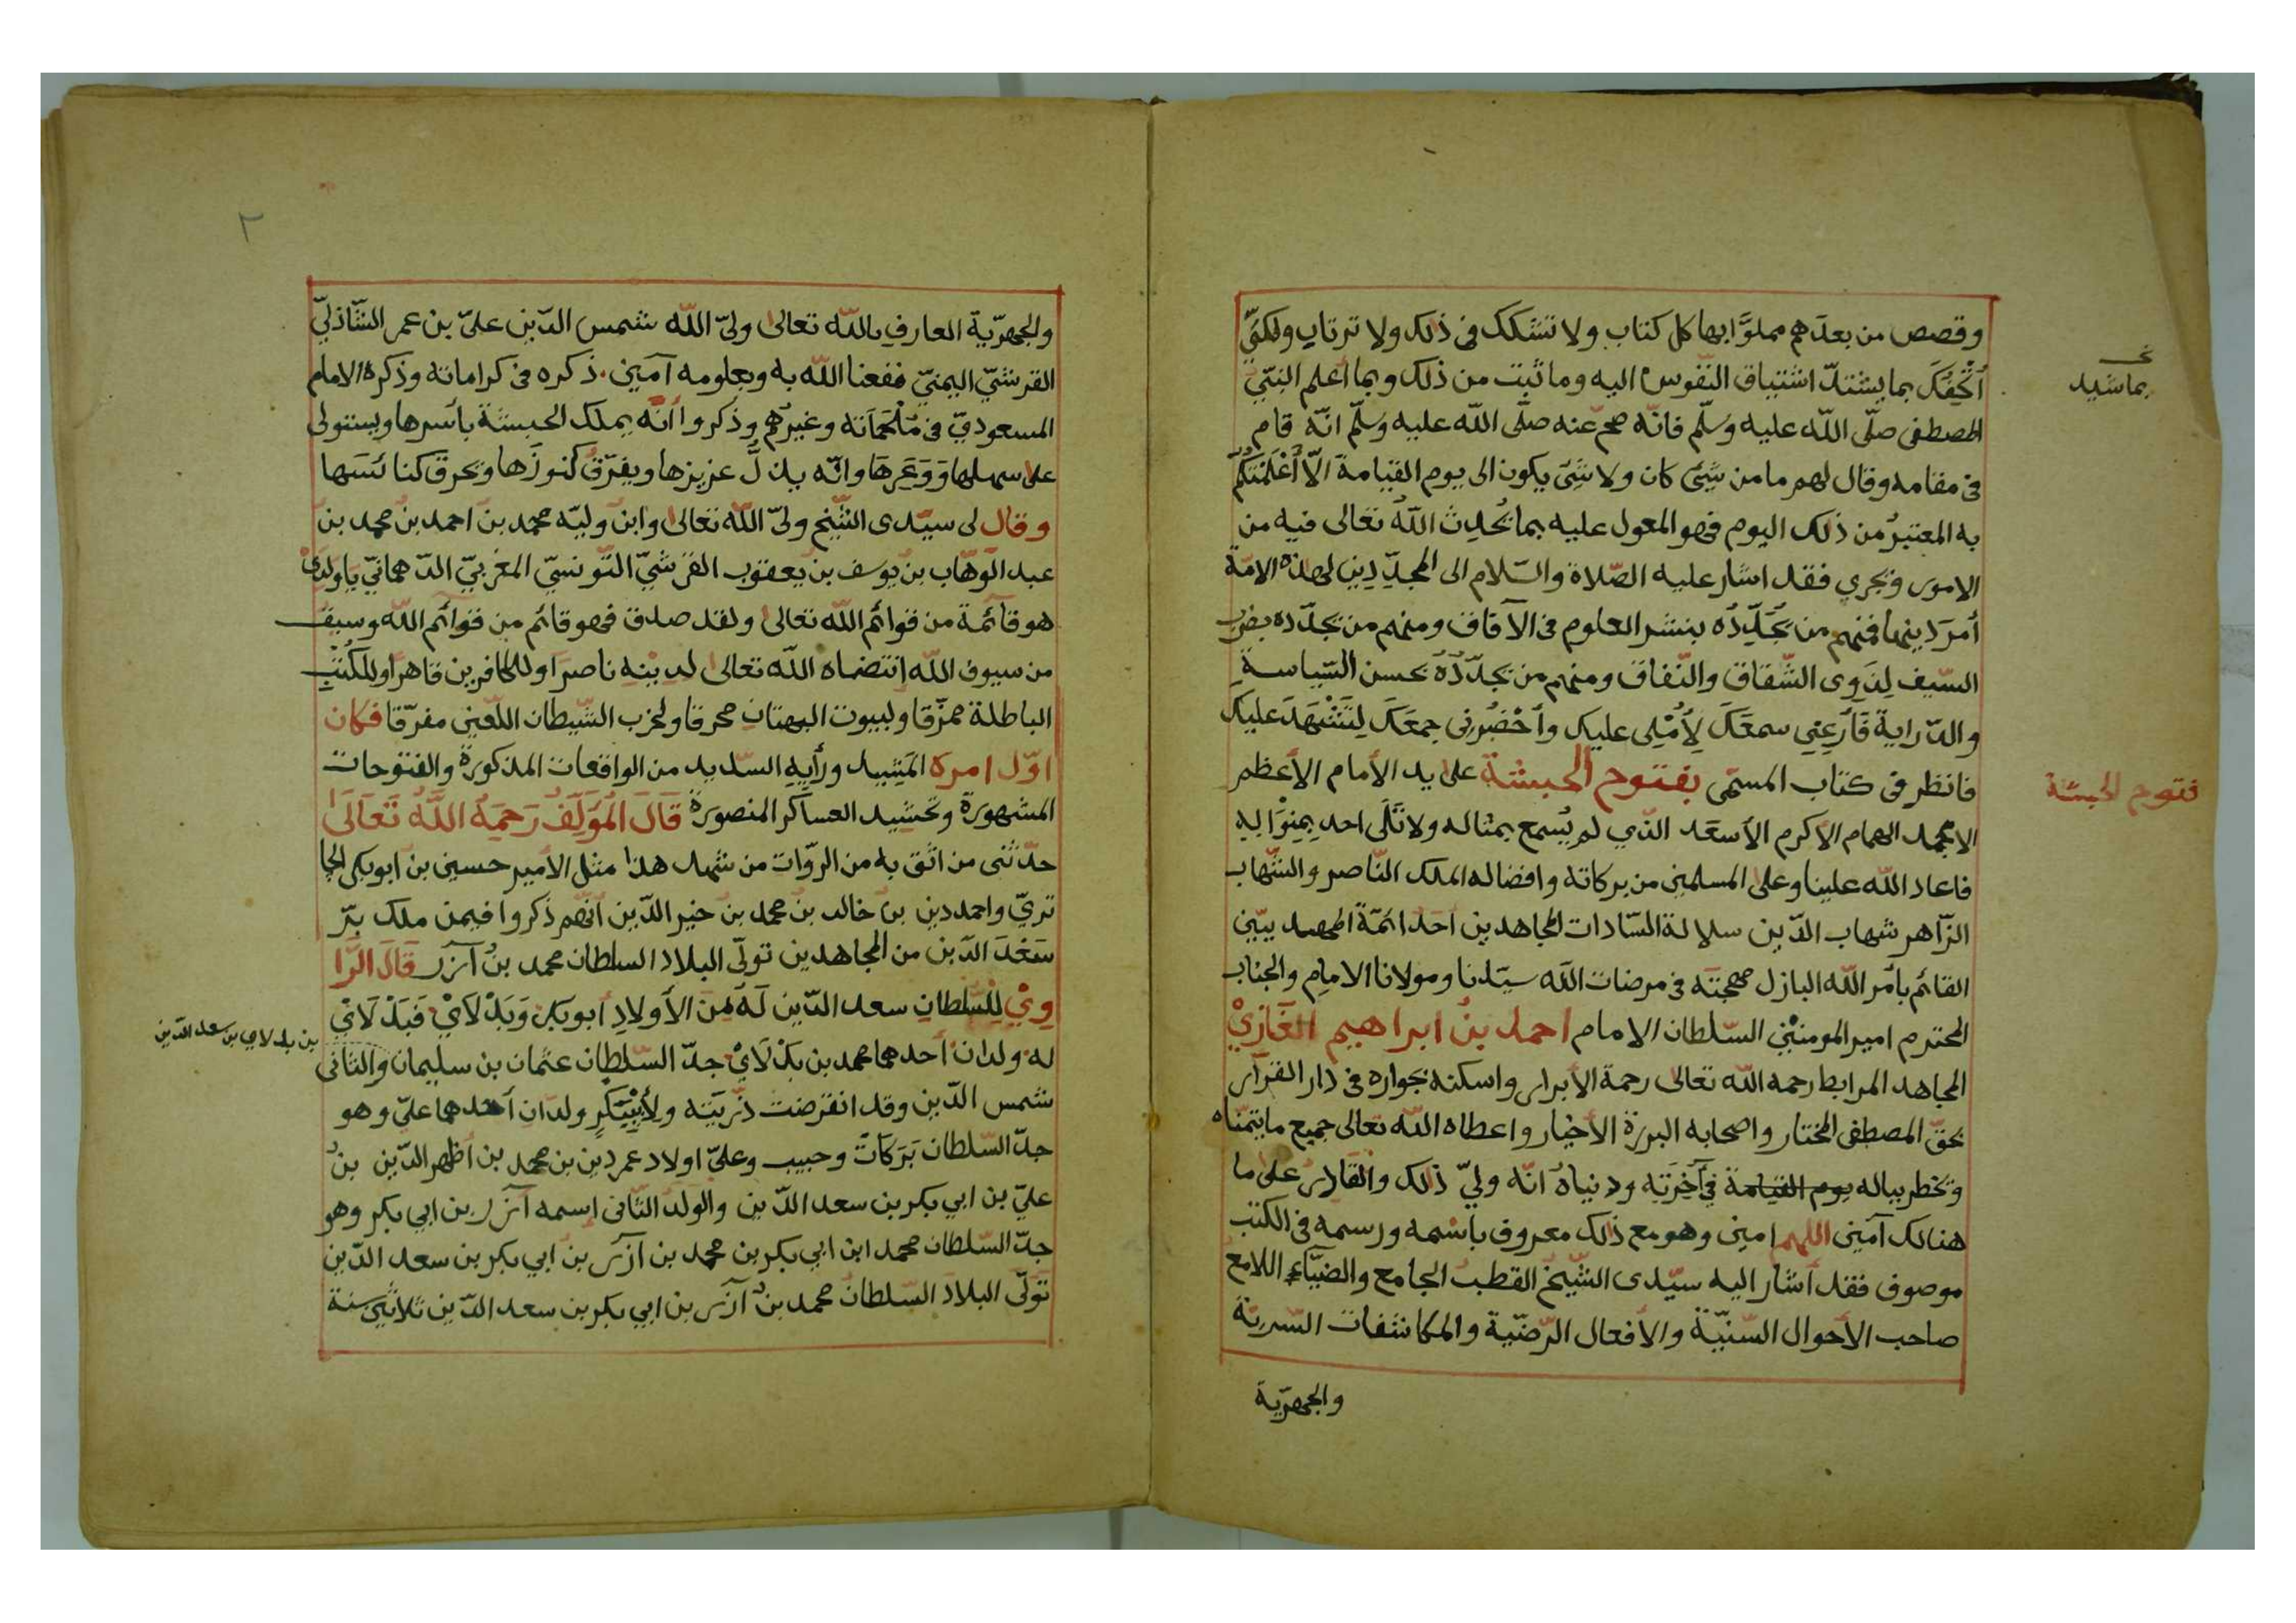 وقصص من بعدهم مملوًّا بها كل كتاب ولا تشكك في ذلك ولا ترتاب ولكنّي
أُتْحِفُكَ بما يشتدّ اشتياق النّفوس اليه وما ثبت من ذلك وبما أعلم النبّي
المصطفى صلّى اللّه عليه وسَلّم فانّه صحّ عنه صلّى اللّه عليه وسَلّم انّه قام
في مقامه وقال لهم ما من شيئ كان ولا شيئ يكون الى يوم القيامة الّا أَعْلَمْتُكُمْ
به المعتبرُ من ذلك اليوم فهو المعول عليه بما يُحدِث اللّهُ تعالى فيه من
الامور ويجري فقد اشار عليه الصّلاة والسّلام الى المجدِّدِين لهذه الامّة
أمرَ دينها فمنهم من يُجَدِّدُه بنشر العلوم في الآفاق ومنهم من يجدّده بضرب
السّيف لِذَوِى الشّقاق والنّفاق ومنهم من يجدّدُهُ بحسن السّياسة
والدّراية فَأَرْعِنِي سمعَكَ لِأُمْلِى عليك وأَحْضُرنِى جمعَكَ لِتَشْهَدَ عليك
فانظر في كتاب المسمّى بفتوح الحبشة على يد الأمام الأعظم
الامجد الهمام الأكرم الأسعَد الذّي لم يُسمع بمثاله ولا تَلَى احد بمِنْوَاله
فاعاد اللّه علينا وعلى المسلمين من بركاته وافضاله الملك النّاصر والشّهاب
الزّاهر شهاب الدّين سلالة السّادات المجاهدين احد ائمّة المهديين
القائم بأمر اللّه البازل مهجته في مرضات اللّه سيّدنا ومولانا الامام والجناب
المحترم امير المومنين السّلطان الامام احمد بنُ ابراهيم الغَازِيْ
المجاهد المرابط رحمه اللّه تعالى رحمة الأبرار واسكنه بجواره في دار القرار
بحقّ المصطفى المختار واصحابه البررة الأخيار واعطاه اللّه تعالى جميع ما يتمنّاه
ويخطر بباله يوم القيامة في آخرَتِه ودنياهُ انّه وليّ ذلك والقادر على ما
هنالك آمين اللهم امين وهو مع ذلك معروف باسْمه ورسمه في الكتب
موصوف فقد أشار اليه سيّدى الشّيخ القطبُ الجامع والضيّاء اللامع
صاحب الأحوال السّنيّة والأفعال الرّضيّة والمكاشفات السّريّة
والجهرّية
بماشيد
فتوح الحبشة
٢
والجهرّية العارف باللّه تعالى ولىّ اللّه شمس الدّين علىّ بن عمر الشّاذليّ
القرشيّ اليمنيّ نفعنا اللّه به وبعلومه آمين. ذكره في كراماته وذكره الامام
المسعوديّ في مَلْحَمَاته وغيرُهم وذكروا انّه يملك الحبشة بأسرها ويستولى
على سهلها وَوَعرِهَا وانّه يذلّ عزيزها ويفرّق كنوزَها ويحرق كنائسَها
وقال لى سيّدى الشّيخ ولىّ اللّه تعالى وابن وليّه محمد بن احمد بن محمد بن
عبد الوّهاب بن يوسف بن يعقوب القرشيّ التّونسيّ المغربيّ الدّهمانيّ ياولدى
هو قائمة من قوائم اللّه تعالى ولقد صدق فهو قائم من قوائم اللّه وسيف
من سيوف اللّه انتضاه اللّه تعالى لدينه ناصرا وللكافرين قاهرا وللكتب
الباطلة ممزّقا ولبيوت البهتان محرقا ولحزب الشّيطان اللّعين مفرّقا فكان
اوّل امره المَشِيد ورأيِه السّديد من الواقعات المذكورة والفتوحات
المشهورة وتحشيد العساكر المنصورة قَالَ الْمُؤَلِّفُ رَحِمَهُ اللَّهُ تَعَالَىٰ
حدّثنى من اثق به من الرّوات من شهد هذا مثل الامير حسين بن ابوبكر الجا
تريّ واحمد دين بن خالد بن محمد بن خير الدّين أنّهم ذكروا فيمن ملك برّ
سَعْدَ الدّين من المجاهدين تولّى البلاد السلطان محمد بنُ آزر قَالَ الرَّا
وِيْ لِلسُّلطانِ سعد الدّين لَهُ مِنَ الأَولادِ أبوبكر وَبَدْلَايْ فَبَدْلَايْ
له ولدان أحدهما محمد بن بَدْلَايْ جدّ السّلطان عثمان بن سليمان والثانى
بن بدلاي بن سعد الدّين
شمس الدّين وقد انقرضت ذرّيته ولِأَبِيْبَكْرٍ ولدان أحدهما علىّ وهو
جدّ السّلطان بَرَكَات وحبيب وعلىّ اولاد عمردين بن محمد بن أظهر الدّين بنُ
عليّ بن ابي بكر بن سعد الدّين والولدُ الثّانى اسمه آزر بن ابي بكر وهو
جدّ السّلطان محمد ابن ابي بكر بن محمد بن آزر بن ابي بكر بن سعد الدّين
تولّى البلاد السّلطان محمد بنُ آزر بن ابي بكر بن سعد الدّين ثلاثين سنة